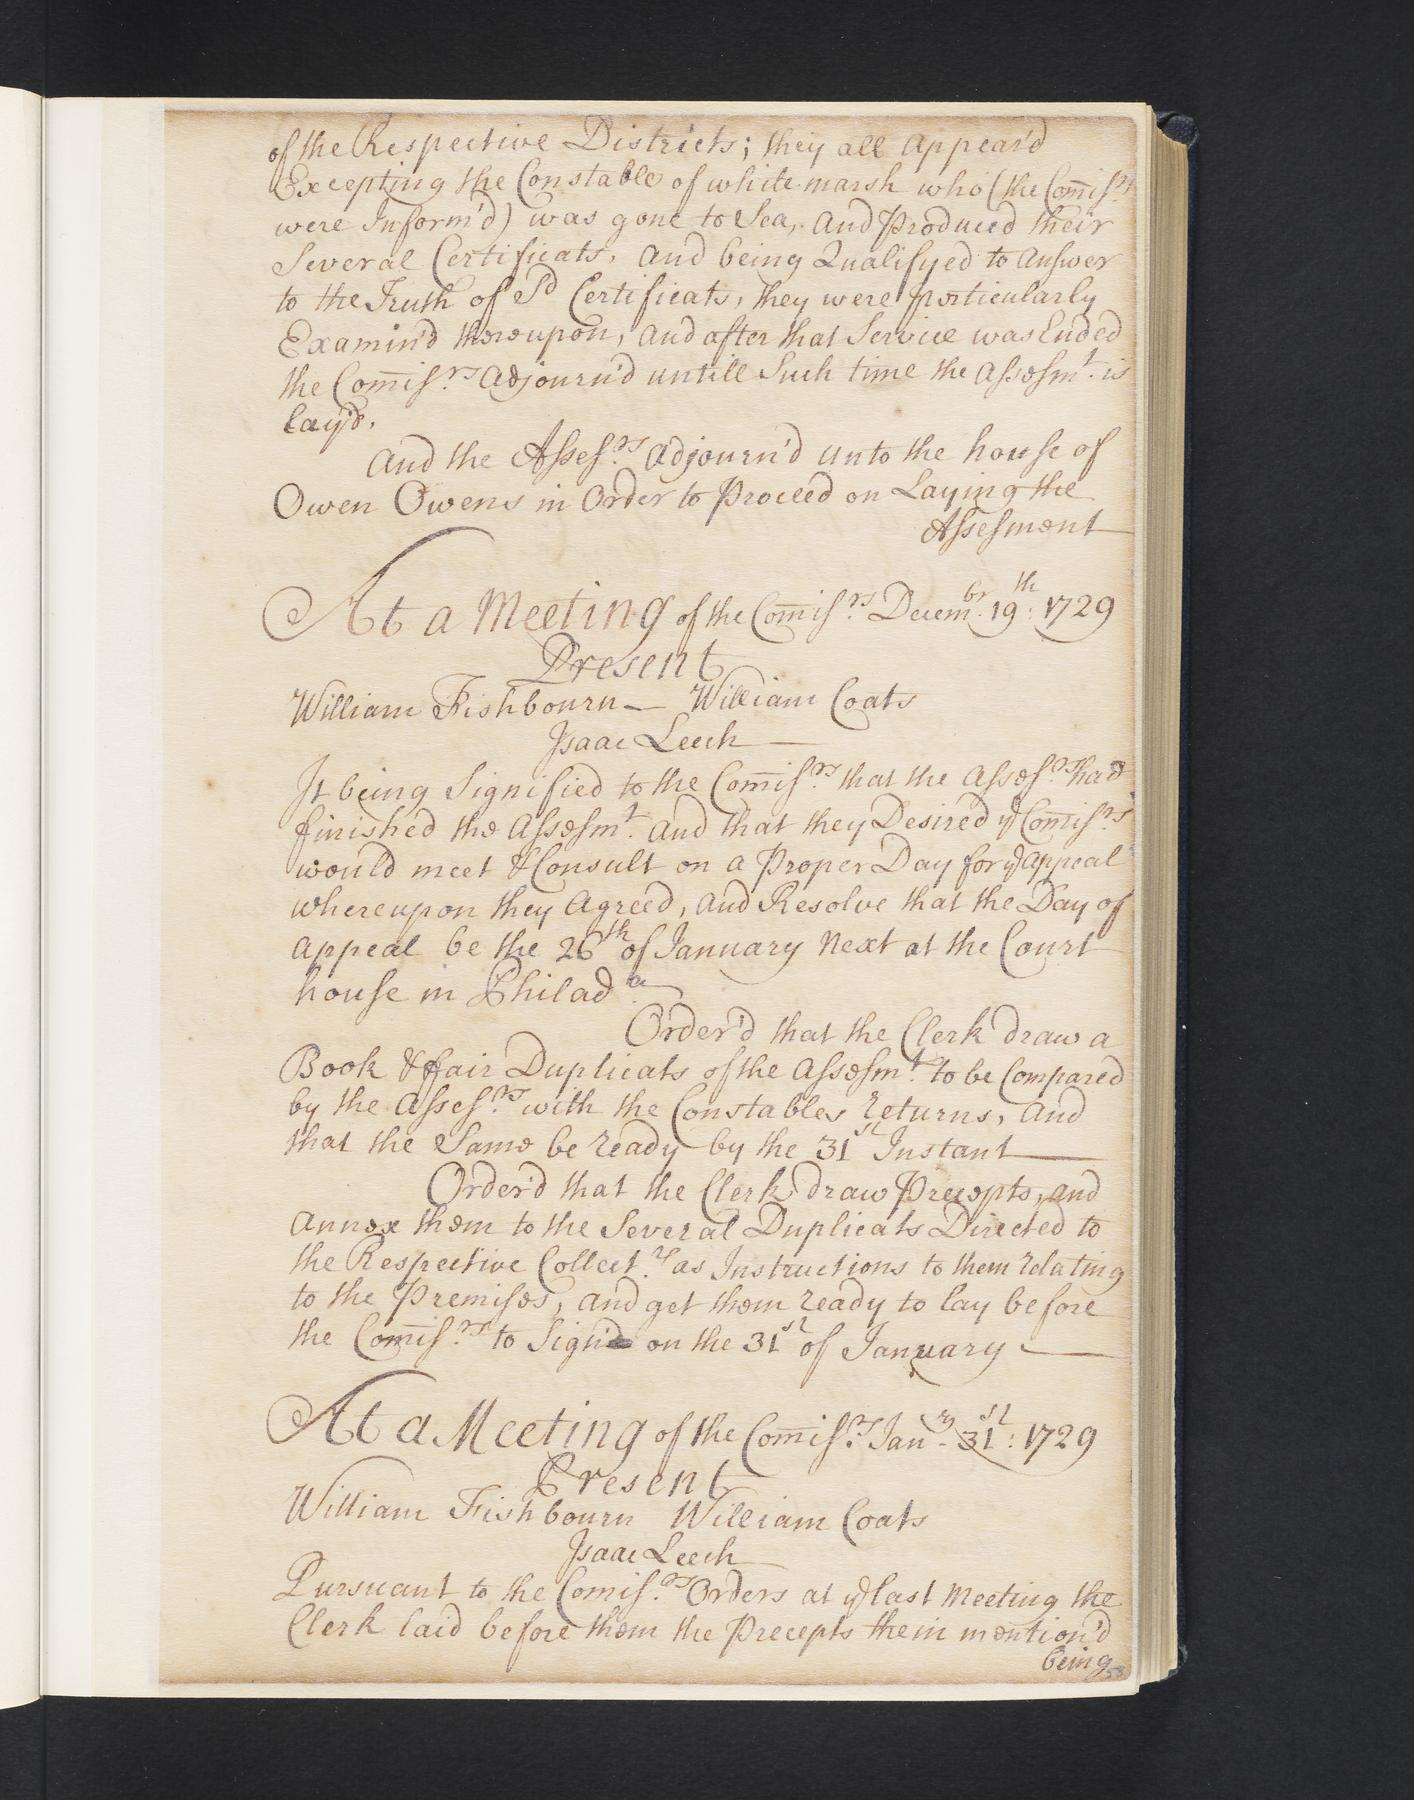 of the Respective Districts; they all Appear'd
Excepting the Constable of white marsh who (the Comis.rs
were Inform'd) was gone to Sea, And Produced their
Several Certificats, And being Qualifyed to Answer
to the Truth of Sd Certificats, they were particularly
Examin'd thereupon, And after that Service was Ended
the Comis.rs Adjourn'd untill Such time the Assesmt. is
lay'd.
And the Asses.rs Adjourn'd unto the house of
Owen Owens in Order to Proceed on Laying the
Assesment
At a Meeting of the Comis.rs Decembr. 19th: 1729
Present
William Fishbourn — William Coats
Isaac Leech —
It being Signified to the Comis.rs that the Asses.rs had
finished the Assesmt. And that they Desired ye Comis.rs
would meet & Consult on a Proper Day for ye Appeal
whereupon they Agreed, And Resolve that the Day of
Appeal be the 26th of January Next at the Court
house in Philada.
Order'd that the Clerk draw a
Book & ffair Duplicats of the Assesmt. to be Compared
by the Asses.rs with the Constables returns, And
that the Same be ready by the 31st Instant —
Order'd that the Clerk draw Precepts, And
Annex them to the Several Duplicats Directed to
the Respective Collect.rs as Instructions to them relating
to the Premises, And get them ready to lay before
the Comis.rs to Sign on the 31st of January —
At a Meeting of the Comis.rs Janry. 31st: 1729
Present
William Fishbourn William Coats
Isaac Leech
Pursuant to the Comis.rs Orders at ye last Meeting the
Clerk laid before them the Precepts therin mention'd
being